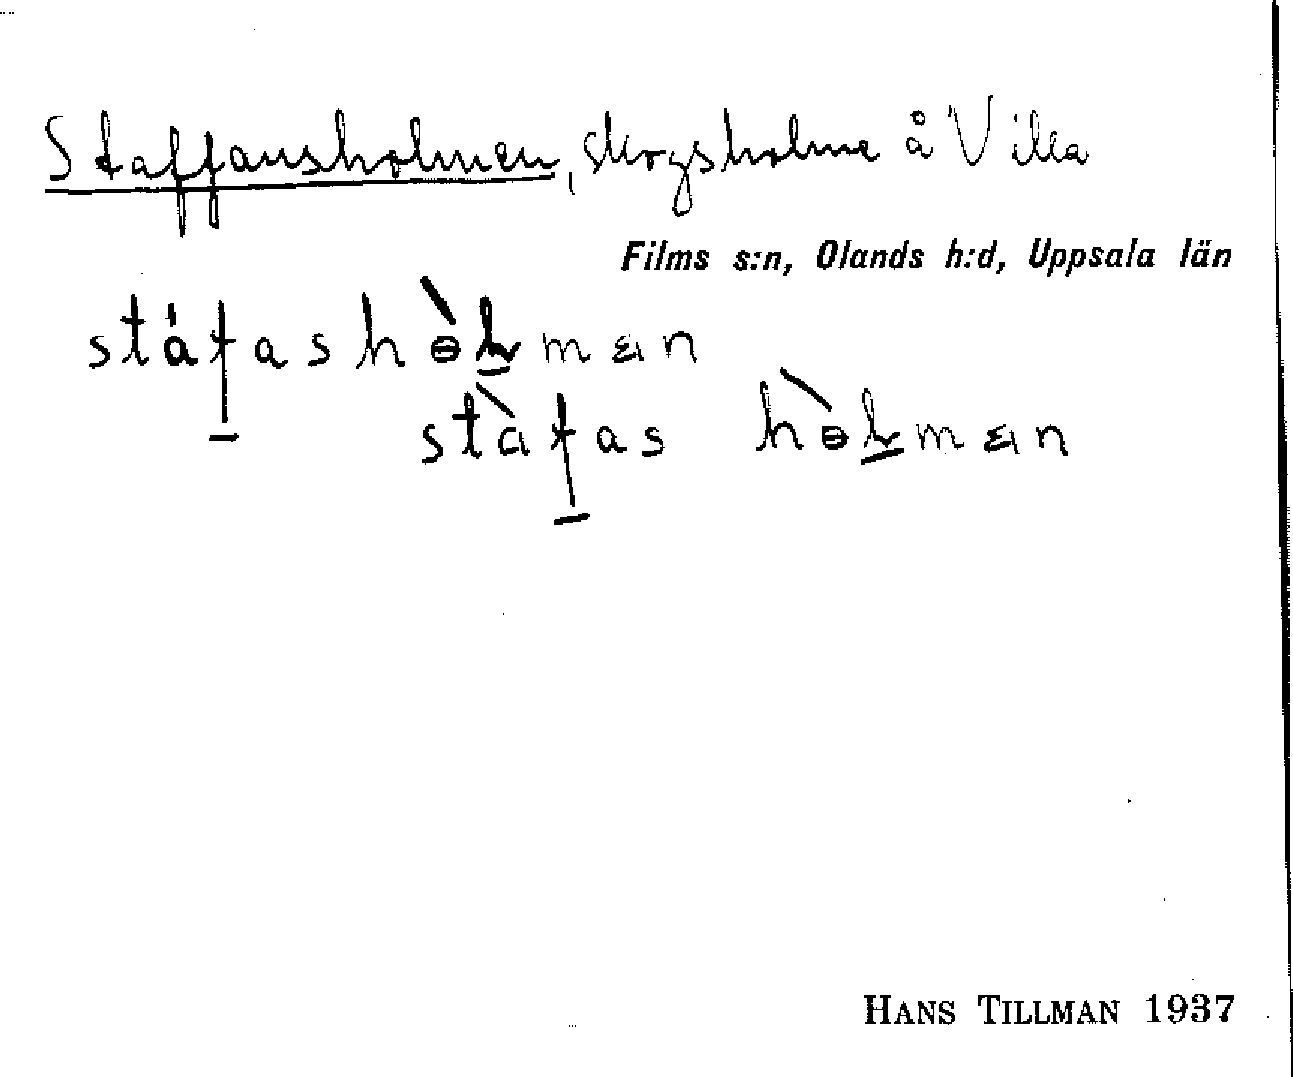 Staffansholmen, skogsholme å Villa
Films s:n, Olands h:d, Uppsala län
stáfashòlmæn
stàfas hòlmæn
HANS TILLMAN 1937